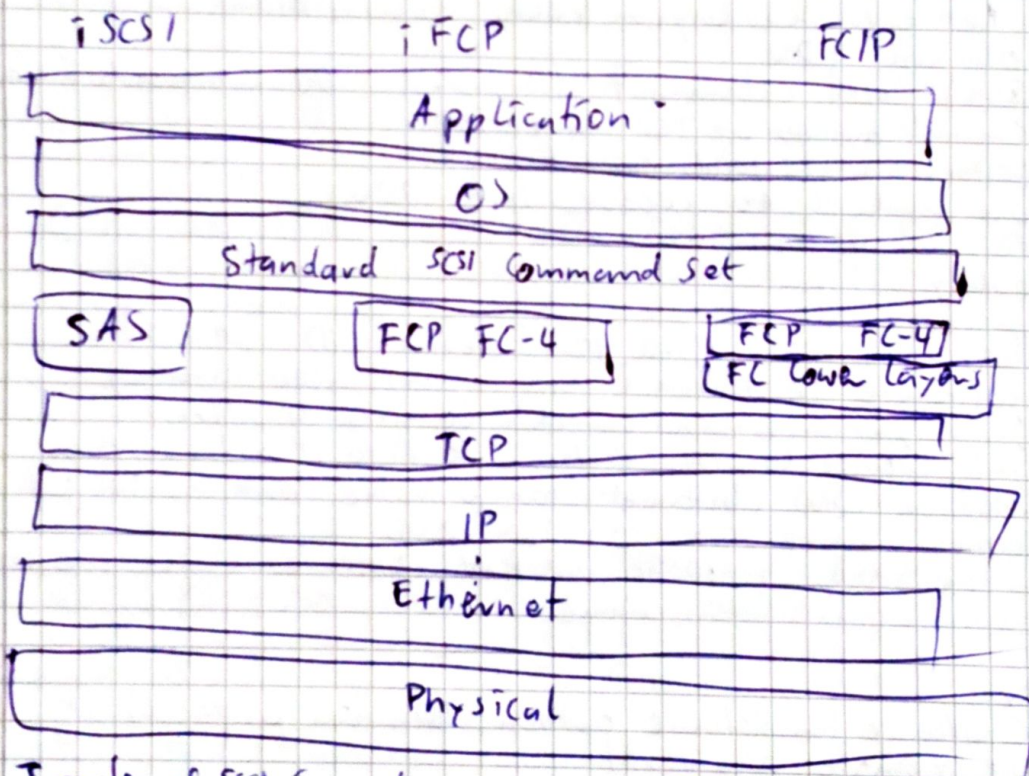 iSCSI iFCP FCIP
Application
OS
Standard SCSI Command Set
SAS FCP FC-4 FCP FC-4
FC Lower Layers
TCP
IP
Ethernet
Physical